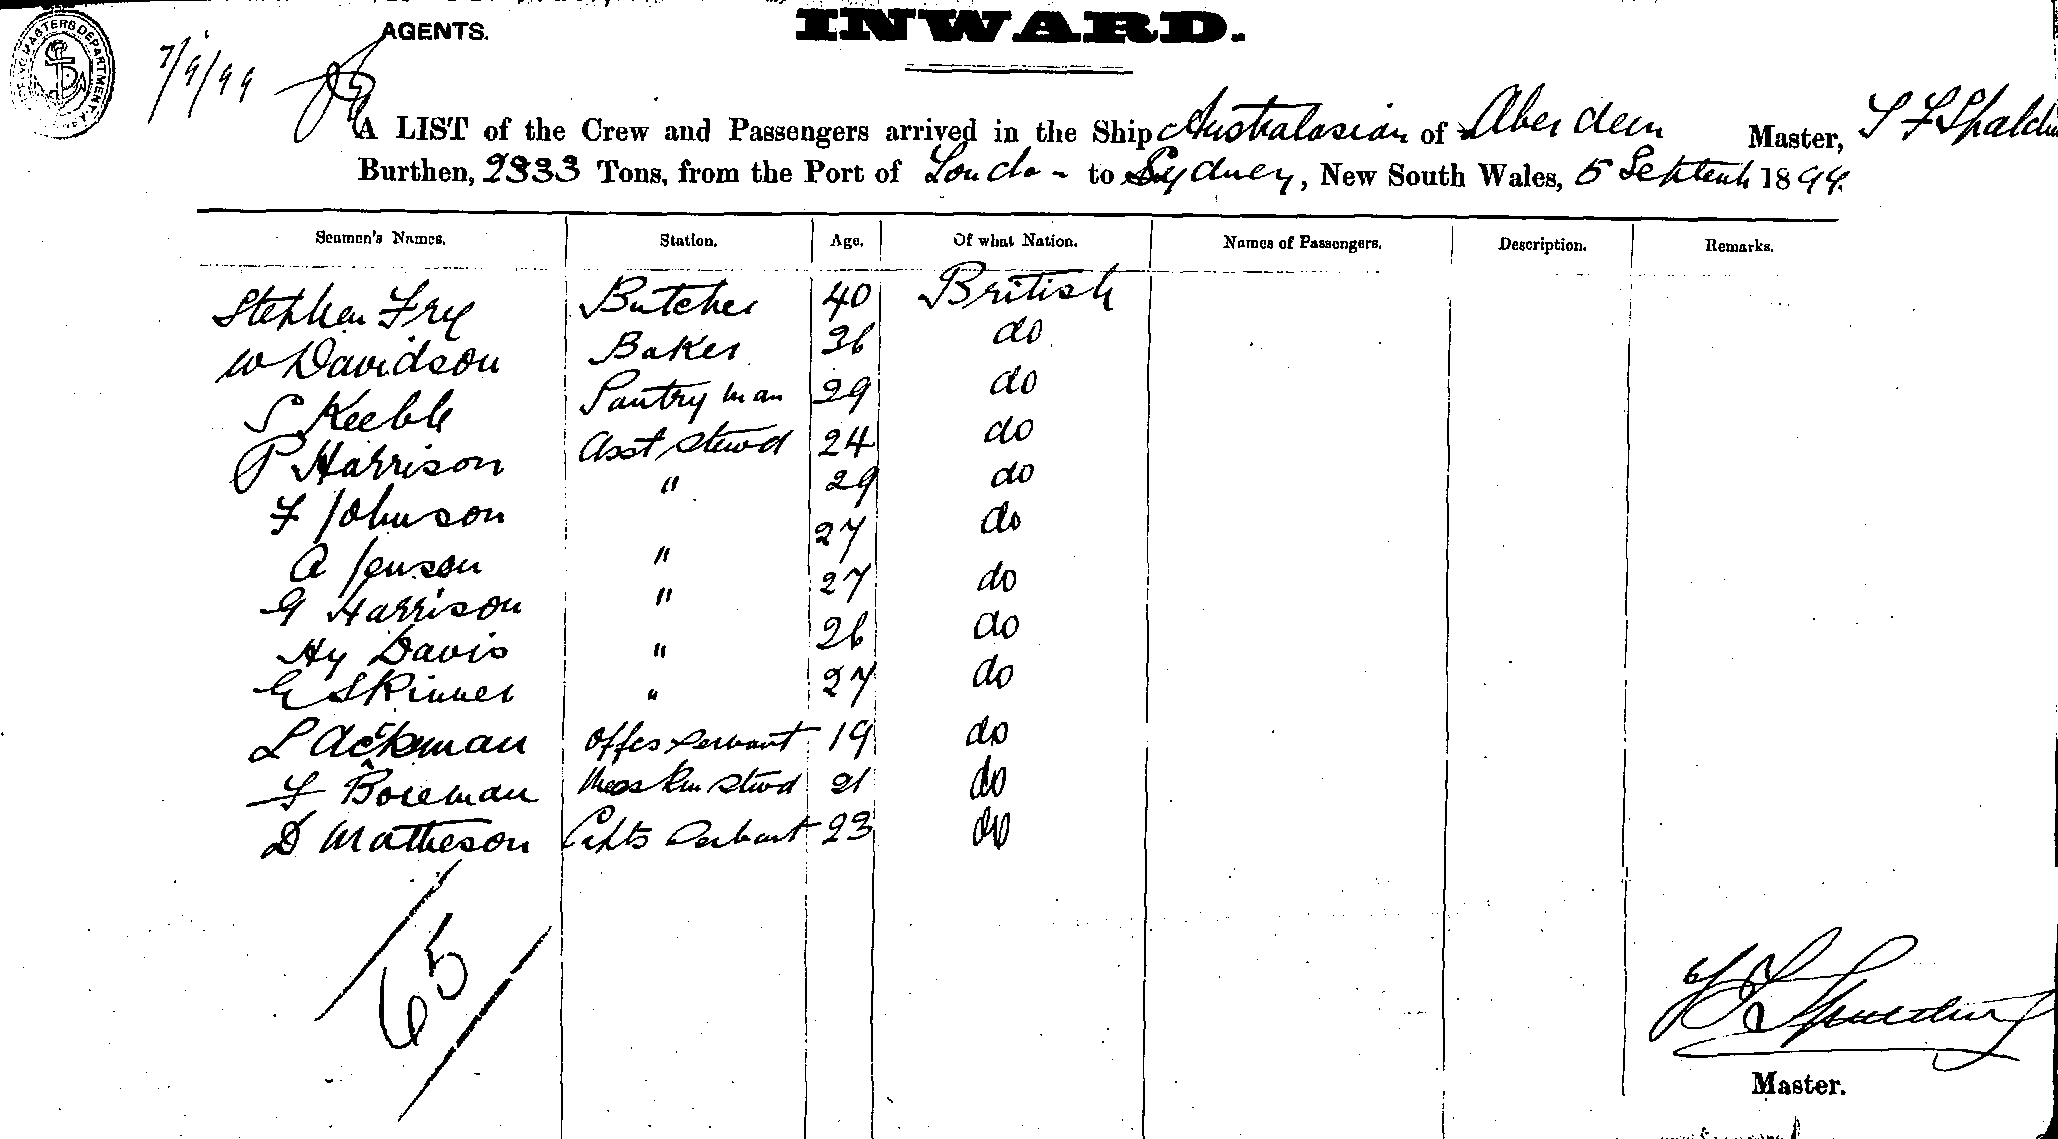 AGENTS.
INWARD.
7/9/99
A LIST of the Crew and Passengers arrived in the Ship Australasian of Aberdeen Master, S F Spaldin
Burthen, 2333 Tons, from the Port of London to Sydney, New South Wales, 5 Septemb 1899.
Seamen's Names. Station. Age. Of what Nation. Names of Passengers. Description. Remarks.
Stephen Fry Butcher 40 British
W Davidson Baker 36 do
S Keeble Pantryman 29 do
P Harrison Asst Stewd 24 do
F Johnson " 29 do
A Jenson " 27 do
G Harrison " 27 do
Hy Davis " 26 do
G Skinner " 27 do
L Ackman Offes Servant 19 do
F Boreman Mess Rm Stwd 21 do
D Matheson Capts Servant 23 do
65
Master.